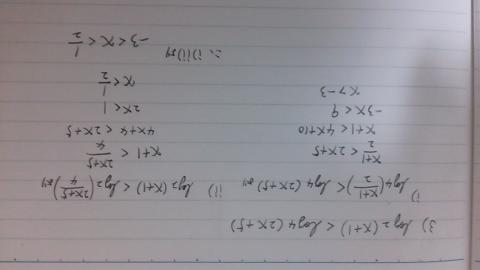 3) log2(x+1) < log4(2x+5)
i) log4(x+1/2) < log4(2x+5)より
x+1/2 < 2x+5
x+1 < 4x+10
-3x < 9
x > -3
ii) log2(x+1) < log2(2x+5/4)より
x+1 < 2x+5/4
4x+4 < 2x+5
2x < 1
x < 1/2
∴ i) ii)より
-3 < x < 1/2